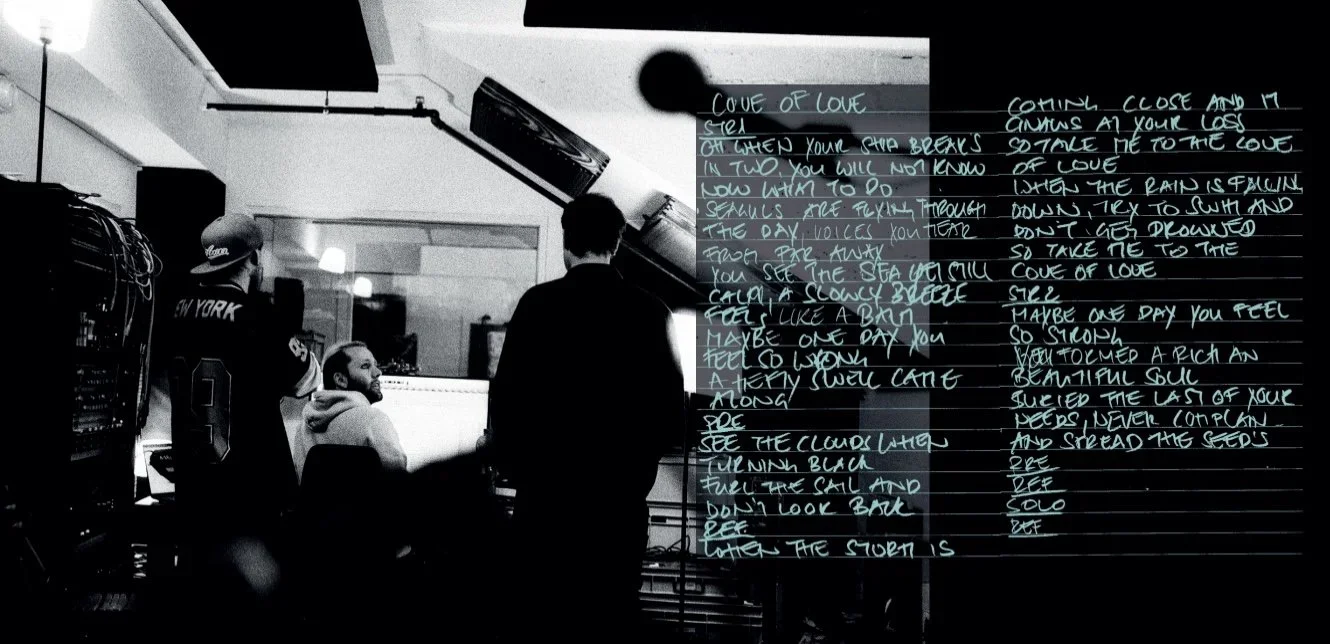 EW YORK
9
COVE OF LOVE
STR1
OH WHEN YOUR SHIP BREAKS
IN TWO, YOU WILL NOT KNOW
NOW WHAT TO DO
SEAGULS ARE FLYING THROUGH
THE DAY, VOICES YOU HEAR
FROM FAR AWAY
YOU SEE THE SEA YET STILL
CALM, A SLOWLY BREEZE
FEELS LIKE A BALM
MAYBE ONE DAY YOU
FEEL SO WRONG
A HEFTY SWELL CAME
ALONG
PRE
SEE THE CLOUDS WHEN
TURNING BLACK
FURL THE SAIL AND
DON'T LOOK BACK
REF
WHEN THE STORM IS
COMING CLOSE AND IT
GNAWS AT YOUR LOSS
SO TAKE ME TO THE COVE
OF LOVE
WHEN THE RAIN IS FALLING
DOWN, TRY TO SWIM AND
DON'T GET DROWNED
SO TAKE ME TO THE
COVE OF LOVE
STR2
MAYBE ONE DAY YOU FEEL
SO STRONG
YOU FORMED A RICH AN
BEAUTIFUL SOUL
BURIED THE LAST OF YOUR
NEEDS, NEVER COMPLAIN
AND SPREAD THE SEED'S
PRE
REF
SOLO
REF